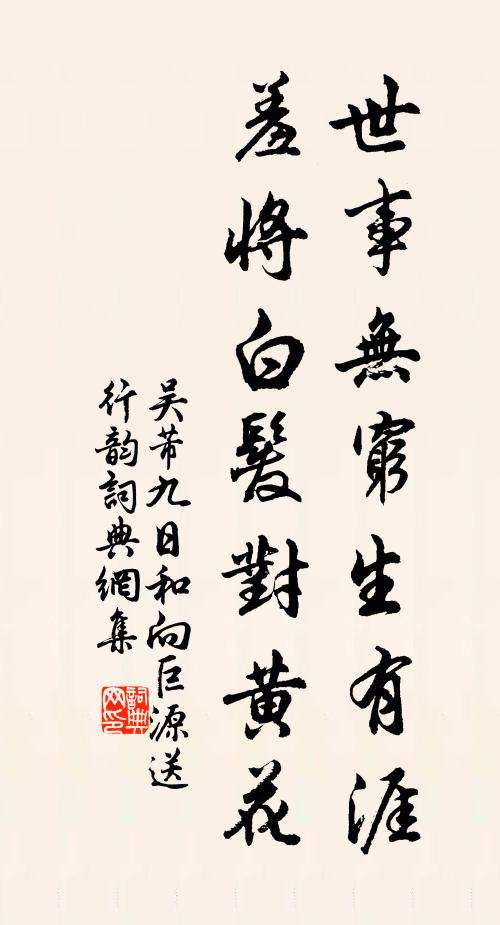 世事無窮生有涯
羞將白髮對黃花
吴芾九日和向巨源送
行韵詞典網集
詞典
网印